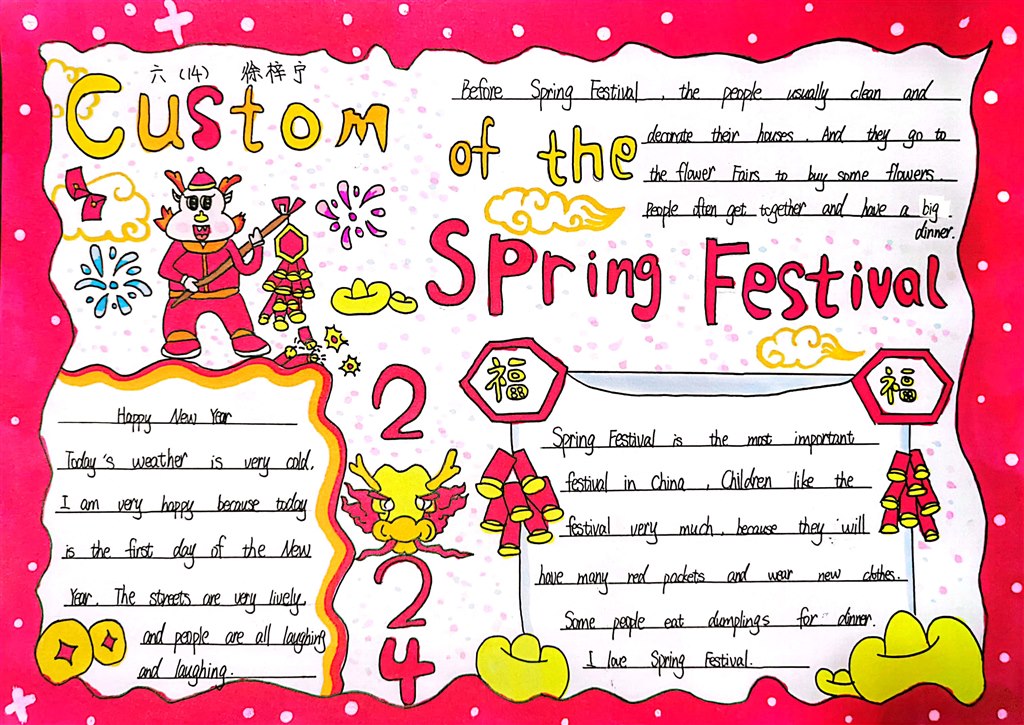 六（14） 徐梓宁
Custom
of the
Spring Festival
Before Spring Festival , the people usually clean and
decorate their houses . And they go to
the flower Fairs to buy some flowers .
People often get together and have a big
dinner.
Happy New Year
Today's weather is very cold.
I am very happy because today
is the first day of the New
Year. The streets are very lively,
and people are all laughing
and laughing.
2
2
4
福
福
Spring Festival is the most important
festival in China , Children like the
festival very much, because they will
have many red packets and wear new clothes.
Some people eat dumplings for dinner.
I love Spring Festival.